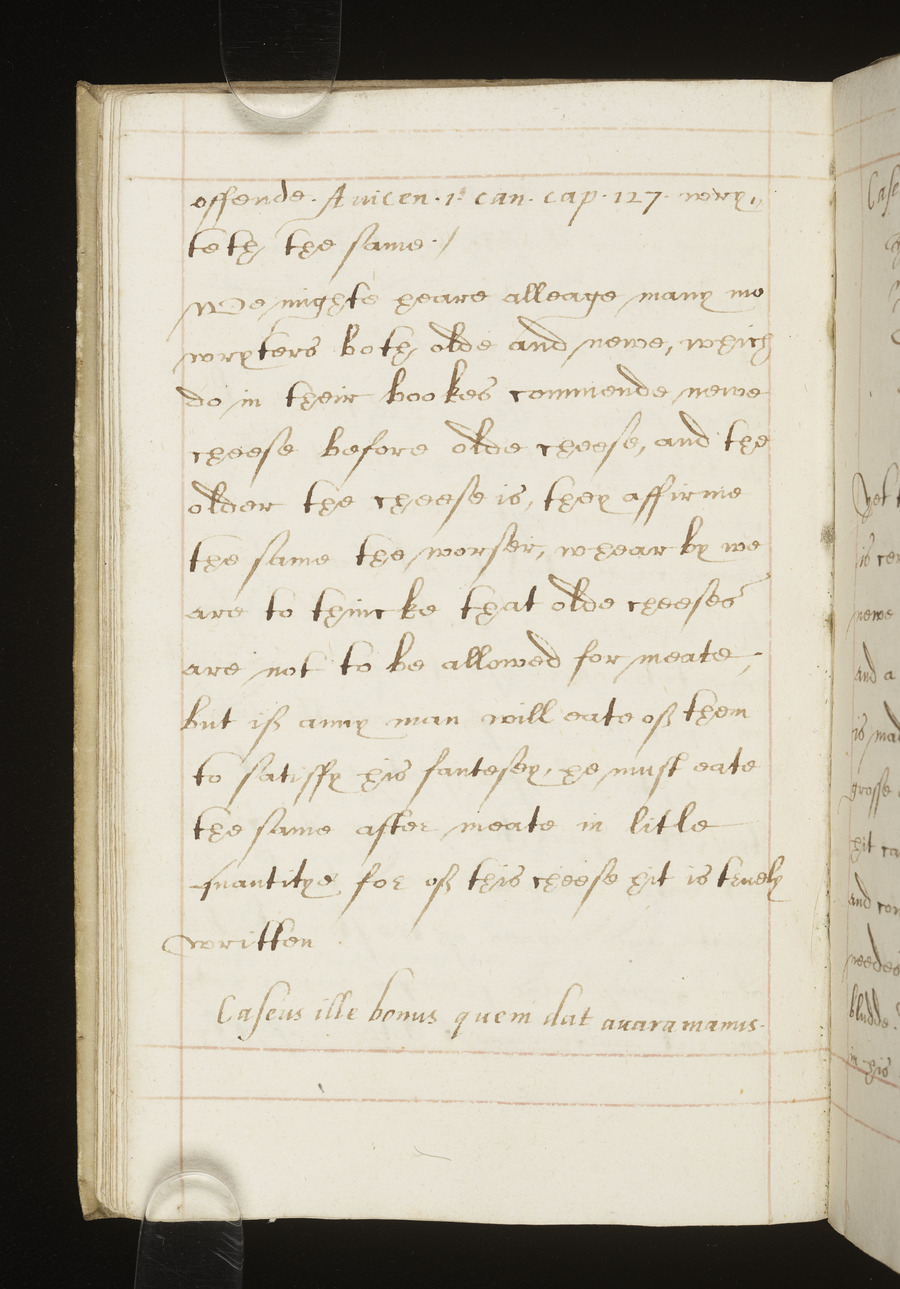 offende. Auicen. 1. can. cap. 127. wry„
teth the same./
We mighte heare alleage many mo
wryters both olde and newe, which
do in their bookes commende newe
cheese before olde cheese, and the
older the cheese is, they affirme
the same the worser, whearby we
are to thincke that olde cheeses
are not to be allowed for meate,
but if anny man will eate of them
to satisfy his fantesey, he must eate
the same after meate in litle
quantitye for of this cheese hit is truely
written.
Caseus ille bonus quem dat auara manus.
Yet
is
newe
and a
is
grosse
hit
and
needes
bludde.
in his